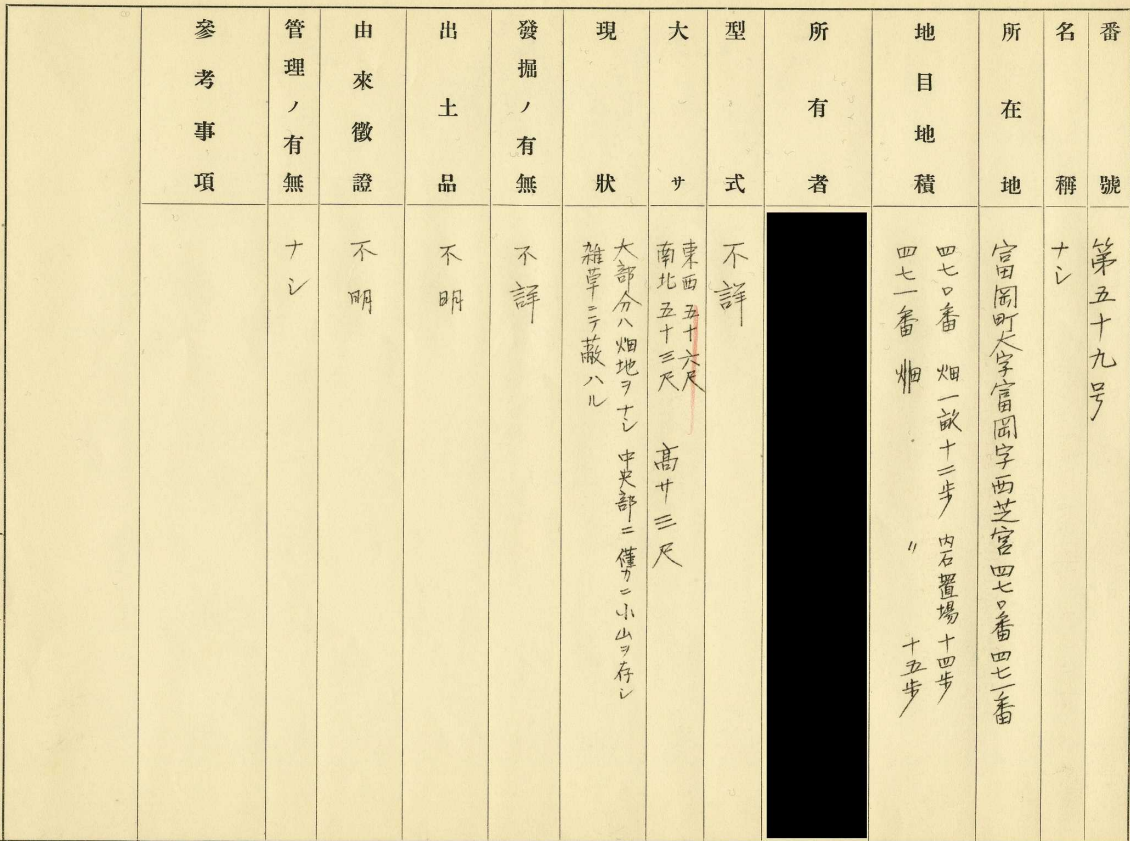 番號
第五十九号
名稱
ナシ
所在地
富岡町大字富岡字西芝宮四七〇番四七一番
地目地積
四七〇番 畑一畝十二歩 内石置場十四歩
四七一番 畑 〃 十五歩
所有者
型式
不詳
大サ
東西五十六尺
南北五十三尺 高サ三尺
現狀
大部分ハ畑地ヲナシ 中央部ニ僅カニ小山ヲ存シ
雑草ニテ蔽ハル
發掘ノ有無
不詳
出土品
不明
由來徵證
不明
管理ノ有無
ナシ
參考事項